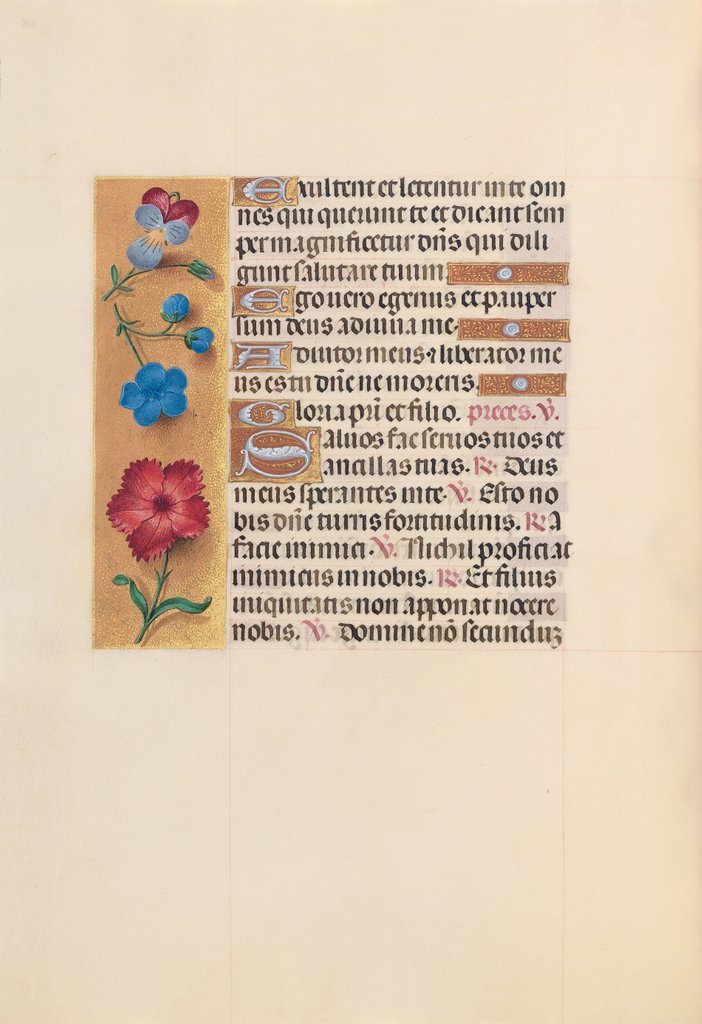 Exultent et letentur in te om
nes qui querunt te et dicant sem
per magnificetur dñs qui dili
gunt salutare tuum
Ego uero egenus et pauper
sum deus adiuua me.
Adiutor meus ⁊ liberator me
us es tu dñe ne moreris.
Gloria pri̅ et filio. preces. V̇.
Saluos fac seruos tuos et
ancillas tuas. Ṙ. Deus
meus sperantes in te. V̇. Esto no
bis dñe turris fortitudinis. Ṙ. A
facie inimici. V̇. Nichil proficiat
inimicus in nobis. Ṙ. Et filius
iniquitatis non apponat nocere
nobis. V̇. Domine nõ secunduꝫ